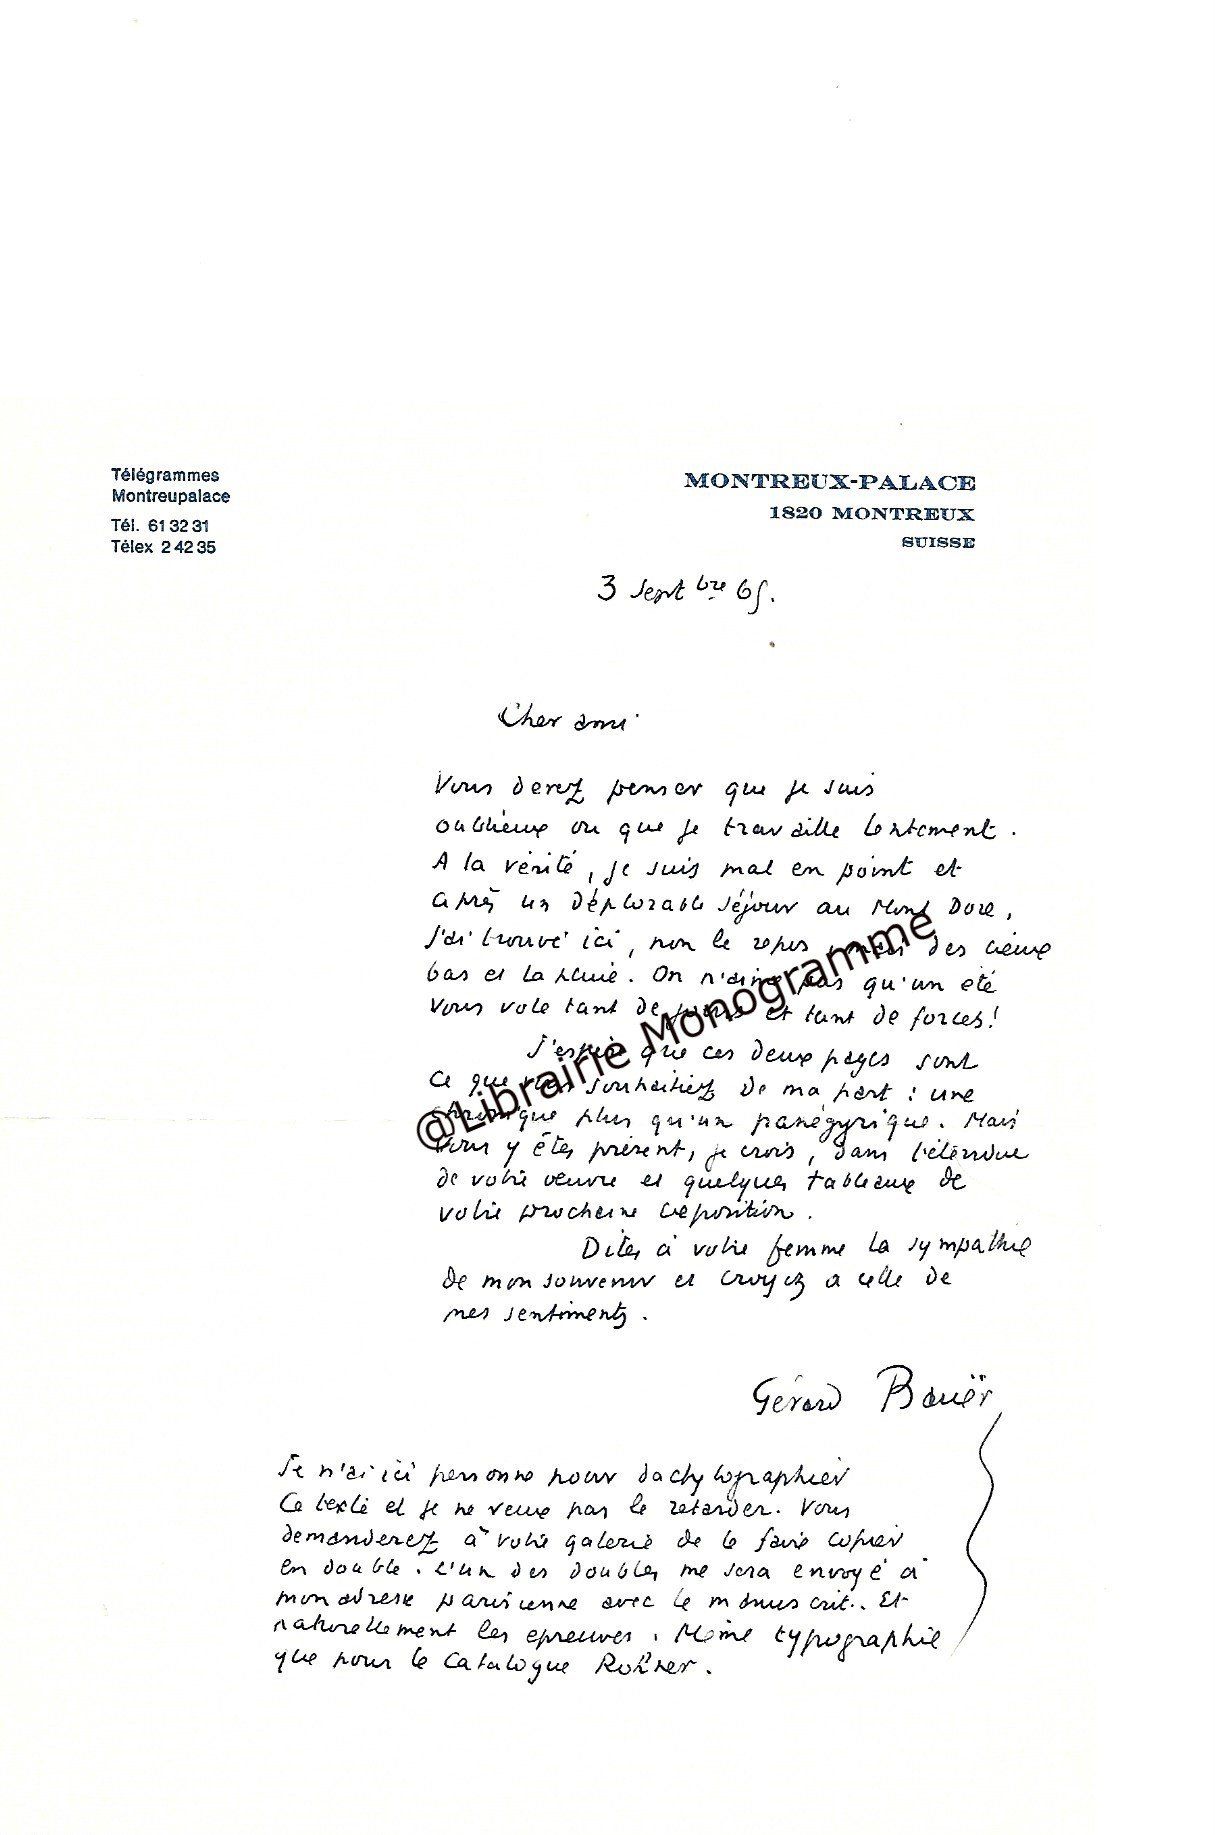 Télégrammes
Montreupalace
Tél. 61 32 31
Télex 2 42 35
MONTREUX-PALACE
1820 MONTREUX
SUISSE
3 Sept bre 65.
Cher ami
Vous devez penser que je suis
oublieux ou que je travaille lentement.
A la vérité, je suis mal en point et
après un déplorable séjour au Mont Dore,
j'ai trouvé ici, non le repos, mais des cieux
bas et la pluie. On n'aime pas qu'un été
vous vole tant de jours et tant de forces!
J'espère que ces deux pages sont
ce que vous souhaitiez de ma part : une
chronique plus qu'un panégyrique. Mais
vous y êtes présent, je crois, dans l'étendue
de votre oeuvre et quelques tableaux de
votre prochaine exposition.
Dites à votre femme la sympathie
de mon souvenir et croyez à celle de
mes sentiments.
Gérard Bauër
Je n'ai ici personne pour dactylographier
ce texte et je ne veux pas le retarder. Vous
demanderez à votre galerie de le faire copier
en double. L'un des doubles me sera envoyé à
mon adresse parisienne avec le manuscrit. Et
naturellement les epreuves. Même typographie
que pour le Catalogue Rohner.
@Librairie Monogramme